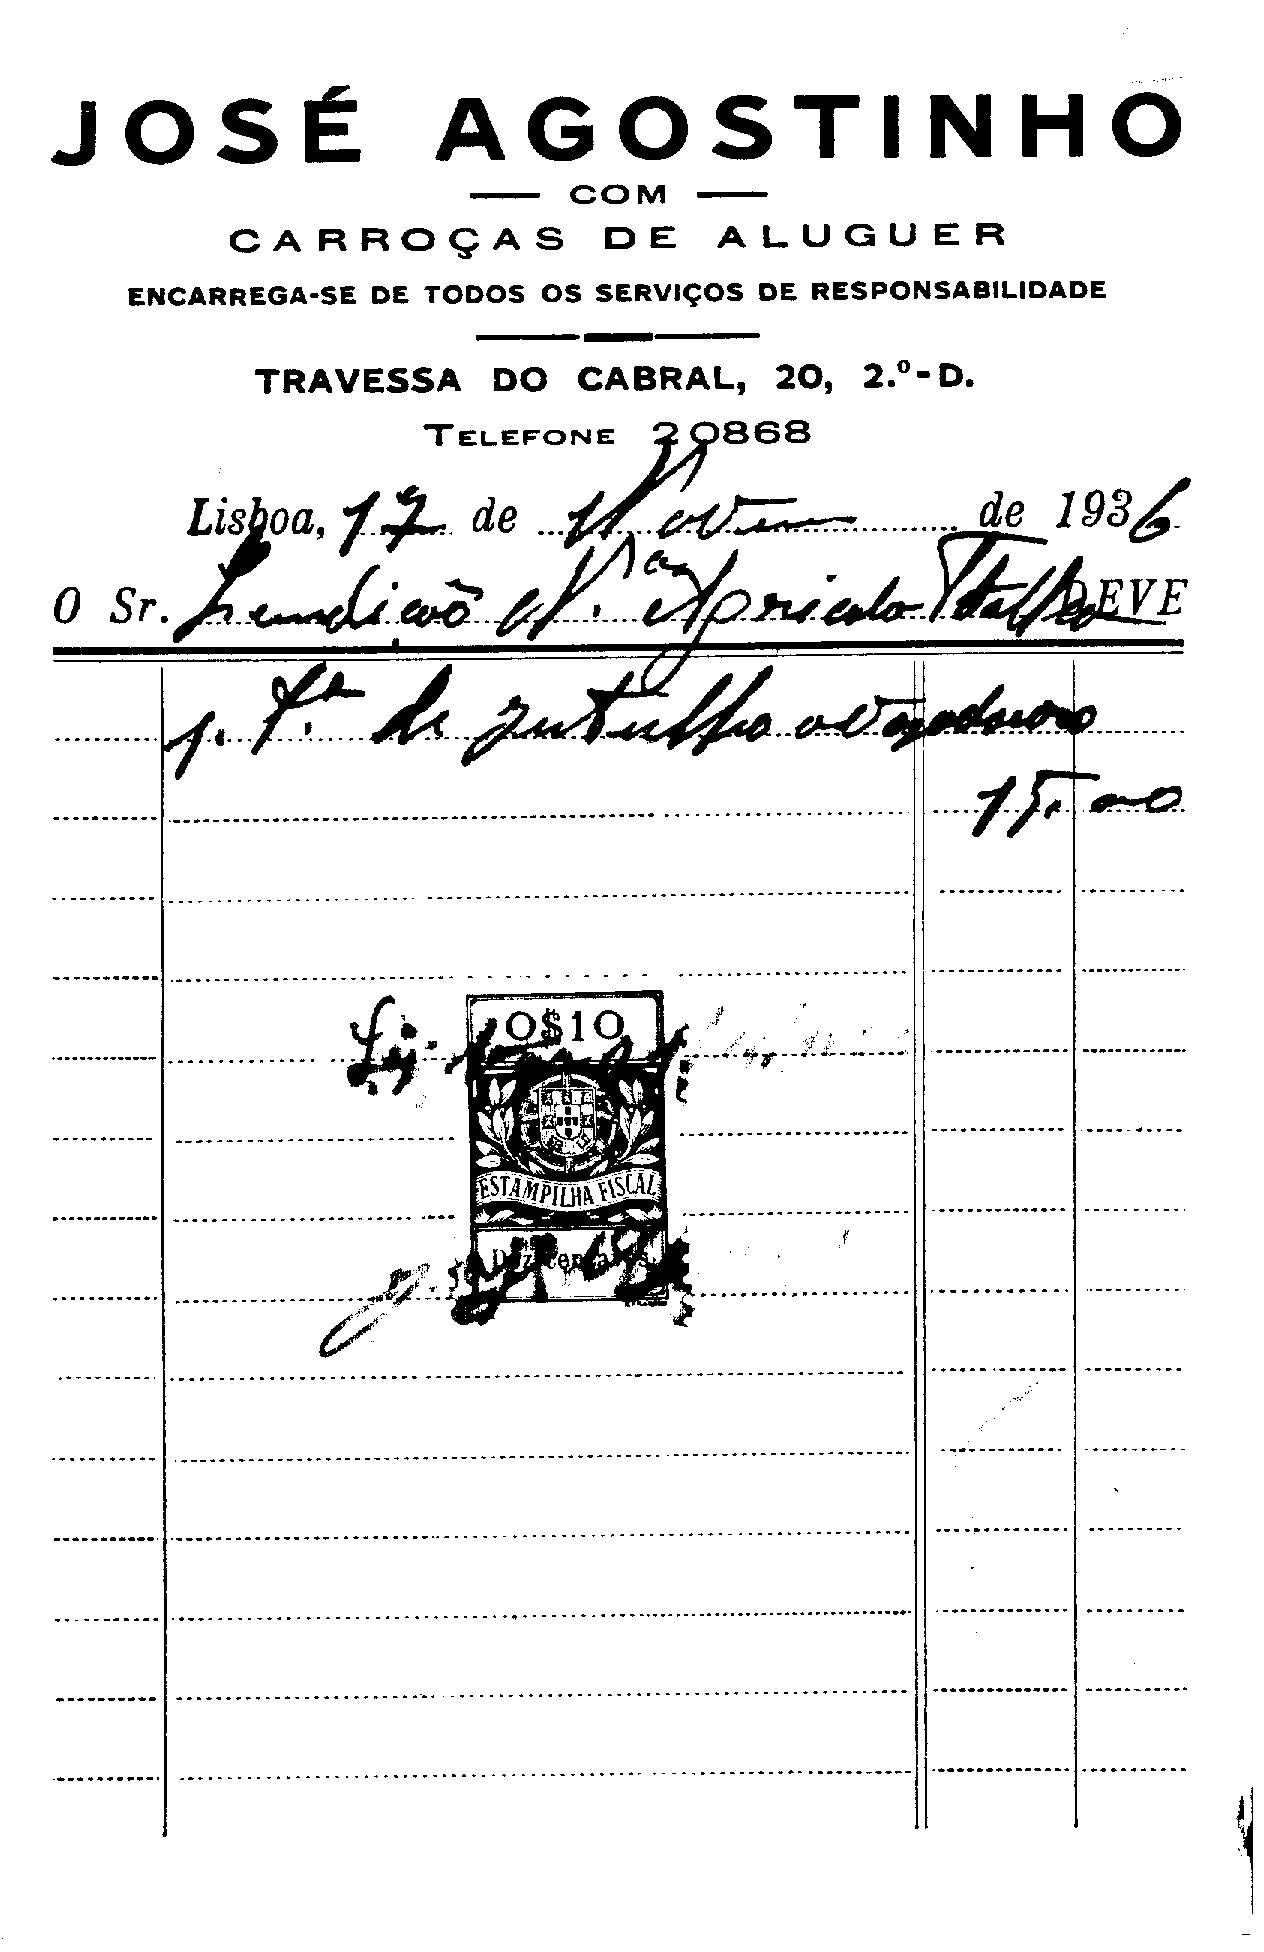 JOSÉ AGOSTINHO
COM
CARROÇAS DE ALUGUER
ENCARREGA-SE DE TODOS OS SERVIÇOS DE RESPONSABILIDADE
TRAVESSA DO CABRAL, 20, 2.º-D.
TELEFONE 20868
Lisboa, 17 de Novem de 1936
O Sr. DEVE
de entulho
15.00
0$10
ESTAMPILHA FISCAL
Dez centavos